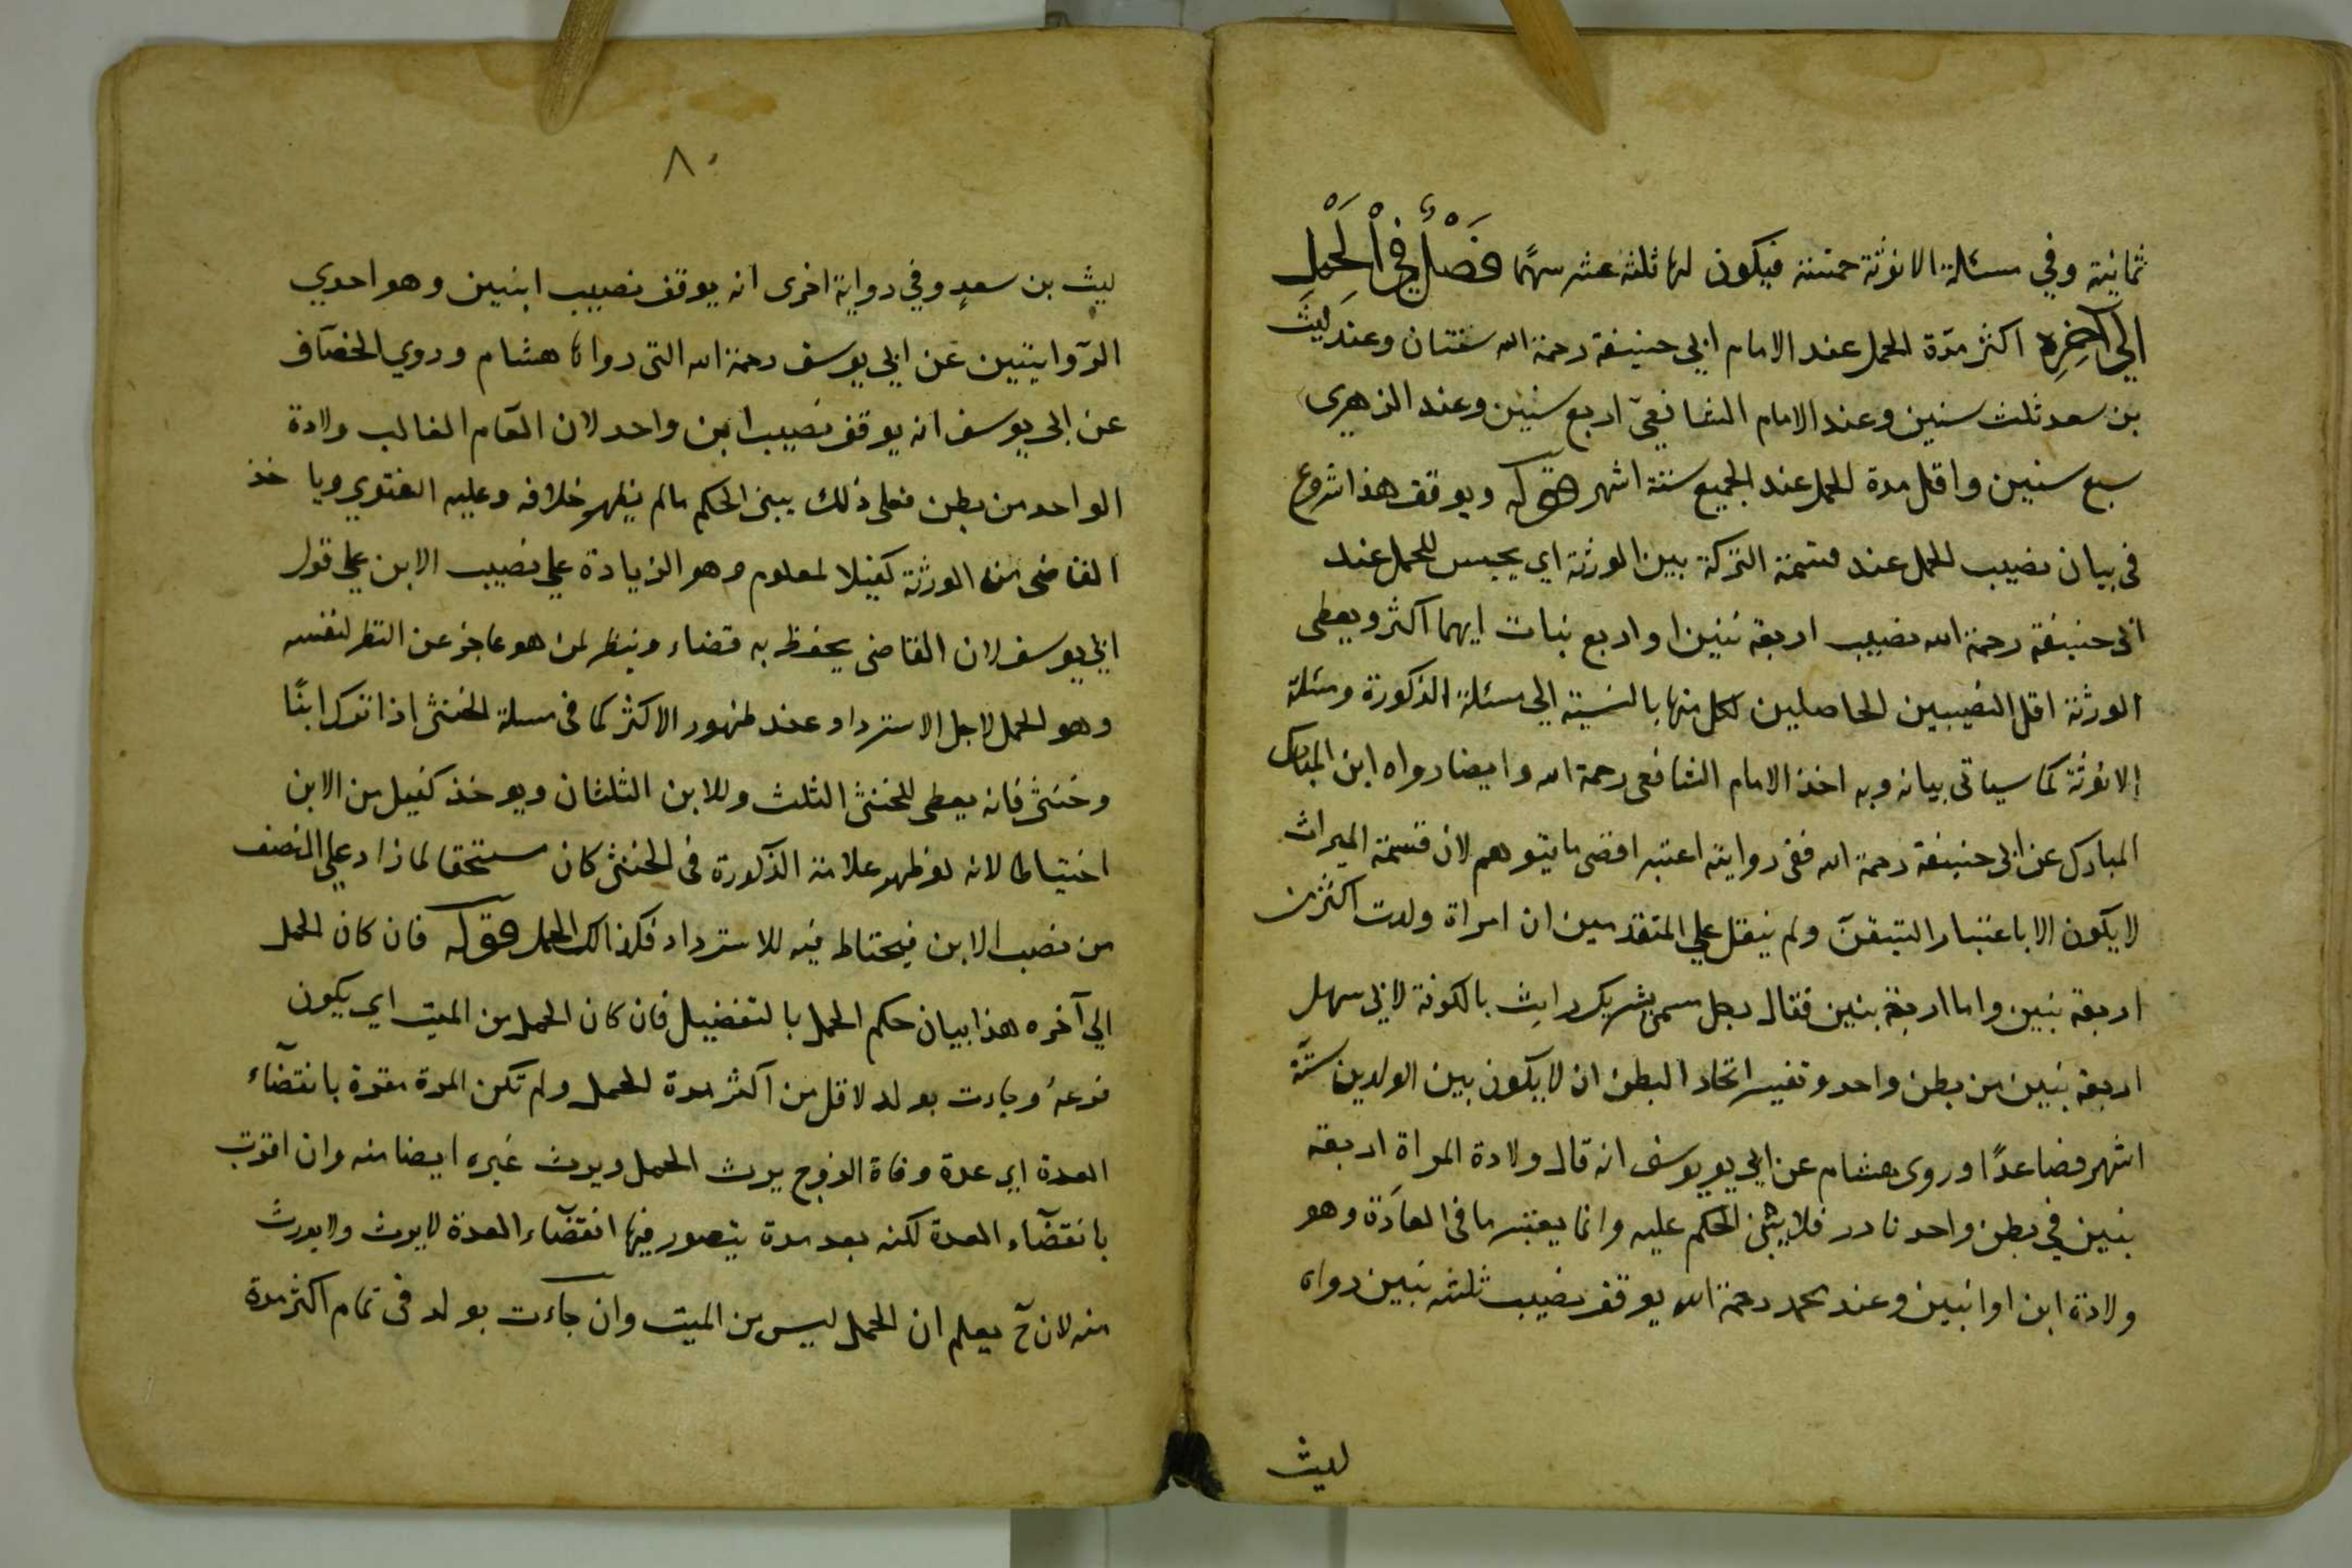 ثمانية وفي مسئلة الانوثة خمسة فيكون لها ثلثة عشر سهمًا فَصْلٌ فِي الْحَمْلِ
الي آخره اكثر مدّة الحمل عند الامام ابي حنيفة رحمة الله سنتان وعند ليث
بن سعد ثلث سنين وعند الامام الشافعيّ اربع سنين وعند الزهري
سبع سنين واقل مدة الحمل عند الجميع ستة اشهر قوله ويوقف هذا شروع
في بيان نصيب الحمل عند قسمة التركة بين الورثة اي يحبس للحمل عند
ابي حنيفة رحمة الله نصيب اربعة بنين او اربع بنات ايهما اكثر ويعطى
الورثة اقل النصيبين الحاصلين لكل منها بالنسبة الي مسئلة الذكورة ومسئلة
الانوثة كما سياتي بيانه وبه اخذ الامام الشافعي رحمة الله وايضا رواه ابن المبارك
المبارك عن ابي حنيفة رحمة الله ففي روايته اعتبر اقصى ما يتوهم لان قسمة الميراث
لا يكون الا باعتبار التيقن ولم ينقل علي المتقدمين ان امراة ولدت اكثر من
اربعة بنين واما اربعة بنين فقال رجل سمى بشريك رايت بالكوفة لابي سهل
اربعة بنين من بطن واحد وتفسير اتحاد البطن ان لا يكون بين الولدين ستّة
اشهر فصاعدًا وروى هشام عن ابي يو يوسف انه قال ولادة المراة اربعة
بنين في بطن واحد نادر فلا يبنى الحكم عليه وانما يعتبر ما في العادة وهو
ولادة ابن او ابنين وعند محمد رحمة الله يوقف نصيب ثلثه بنين رواه
ليث
٨٠
ليث بن سعدٍ وفي رواية اخرى انه يوقف نصيب ابنين وهو احدي
الروايتين عن ابي يوسف رحمة الله التي رواها هشام وروي الخصّاف
عن ابي يوسف انه يوقف نصيب ابن واحد لان العام الغالب ولادة
الواحد من بطن فعلى ذلك يبنى الحكم مالم يظهر خلافه وعليه الفتوي وياخذ
القاضى من الورثة كفيلا لمعلوم وهو الزيادة علي نصيب الابن علي قول
ابي يوسف لان القاضى يحفظ به قضاء وينظر لمن هو عاجز عن النظر لنفسه
وهو الحمل لاجل الاسترداد عند ظهور الاكثر كما في مسلة الخنثى اذا ترك ابنًا
وخنثى فانه يعطى للخنثى الثلث وللابن الثلثان ويوخذ كفيل من الابن
احتياطا لانه لو ظهر علامة الذكورة في الخنثى كان مستحقا لما زاد علي النصف
من نصيب الابن فيحتاط فيه للاسترداد فكذالك الحمل قوله فان كان الحمل
الي آخره هذا بيان حكم الحمل بالتفضيل فان كان الحمل من الميت اي يكون
فرعهُ وجاءت بولد لاقل من اكثر مدة الحمل ولم تكن المدة مقرة بانقضاء
العدة اي عدة وفاة الزوج يرث الحمل ويرث غيره ايضا منه وان اقرت
بانقضاء العدة لكنه بعد مدة يتصور فيها انقضاء العدة لا يرث ولا يورث
منه لان حَ يعلم ان الحمل ليس من الميت وان جاءت بولد في تمام اكثر مدة